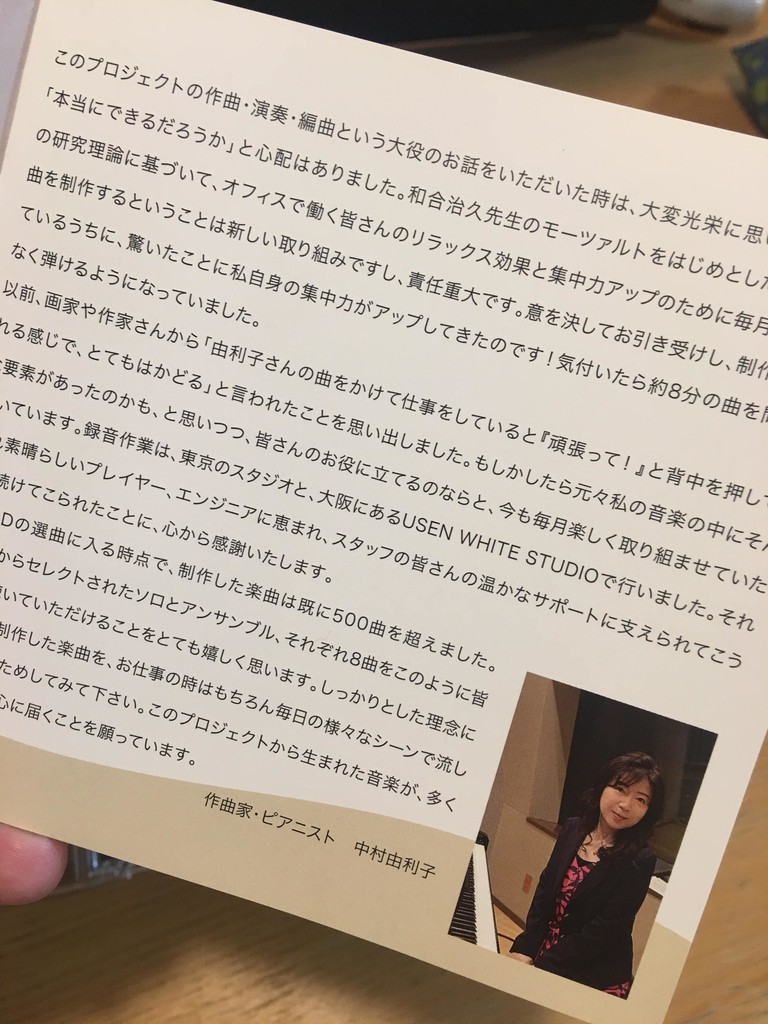 このプロジェクトの作曲・演奏・編曲という大役のお話をいただいた時は、大変光栄に思い
「本当にできるだろうか」と心配はありました。和合治久先生のモーツァルトをはじめとした
の研究理論に基づいて、オフィスで働く皆さんのリラックス効果と集中力アップのために毎月
曲を制作するということは新しい取り組みですし、責任重大です。意を決してお引き受けし、制作
ているうちに、驚いたことに私自身の集中力がアップしてきたのです！気付いたら約8分の曲を
なく弾けるようになっていました。
以前、画家や作家さんから「由利子さんの曲をかけて仕事をしていると『頑張って！』と背中を押して
れる感じで、とてもはかどる」と言われたことを思い出しました。もしかしたら元々私の音楽の中にそん
要素があったのかも、と思いつつ、皆さんのお役に立てるのならと、今も毎月楽しく取り組ませていた
いています。録音作業は、東京のスタジオと、大阪にあるUSEN WHITE STUDIOで行いました。それ
素晴らしいプレイヤー、エンジニアに恵まれ、スタッフの皆さんの温かなサポートに支えられてこう
続けてこられたことに、心から感謝いたします。
Dの選曲に入る時点で、制作した楽曲は既に500曲を超えました。
からセレクトされたソロとアンサンブル、それぞれ8曲をこのように皆
いていただけることをとても嬉しく思います。しっかりとした理念に
制作した楽曲を、お仕事の時はもちろん毎日の様々なシーンで流し
ためしてみて下さい。このプロジェクトから生まれた音楽が、多く
心に届くことを願っています。
作曲家・ピアニスト 中村由利子